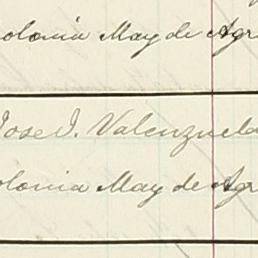 olonia May de Agr
Jose J. Valenzuela
olonia May de Agr